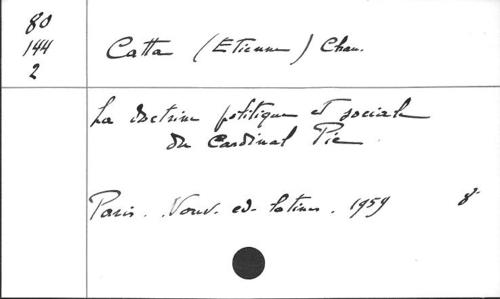 80
144
2
Catta (Etienne) Chan.
La doctrine politique et sociale
du Cardinal Pie
Paris. Nouv. ed. latines. 1959 8°